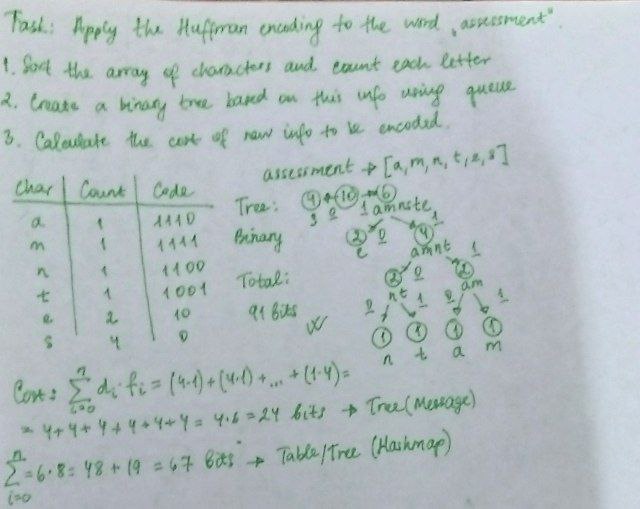 Task: Apply the Huffman encoding to the word „assessment".
1. Sort the array of characters and count each letter
2. Create a binary tree based on this info using queue
3. Calculate the cost of new info to be encoded.
assessment → [a, m, n, t, e, s]
Char Count Code
a 1 1110
m 1 1111
n 1 1100
t 1 1001
e 2 10
s 4 0
Tree:
Binary
Total:
91 bits
4 ← 10 → 6
s 0 1 amnste
2 0 4 1
e amnt
2 0 2 1
nt am
0 1 0 1
1 1 1 1
n t a m
Cost: n∑i=0 di·fi = (4·1)+(4·1)+...+(1·4)=
= 4+4+4+4+4+4 = 4·6=24 bits → Tree (Message)
n∑i=0 = 6·8= 48 + 19 = 67 bits → Table/Tree (Hashmap)